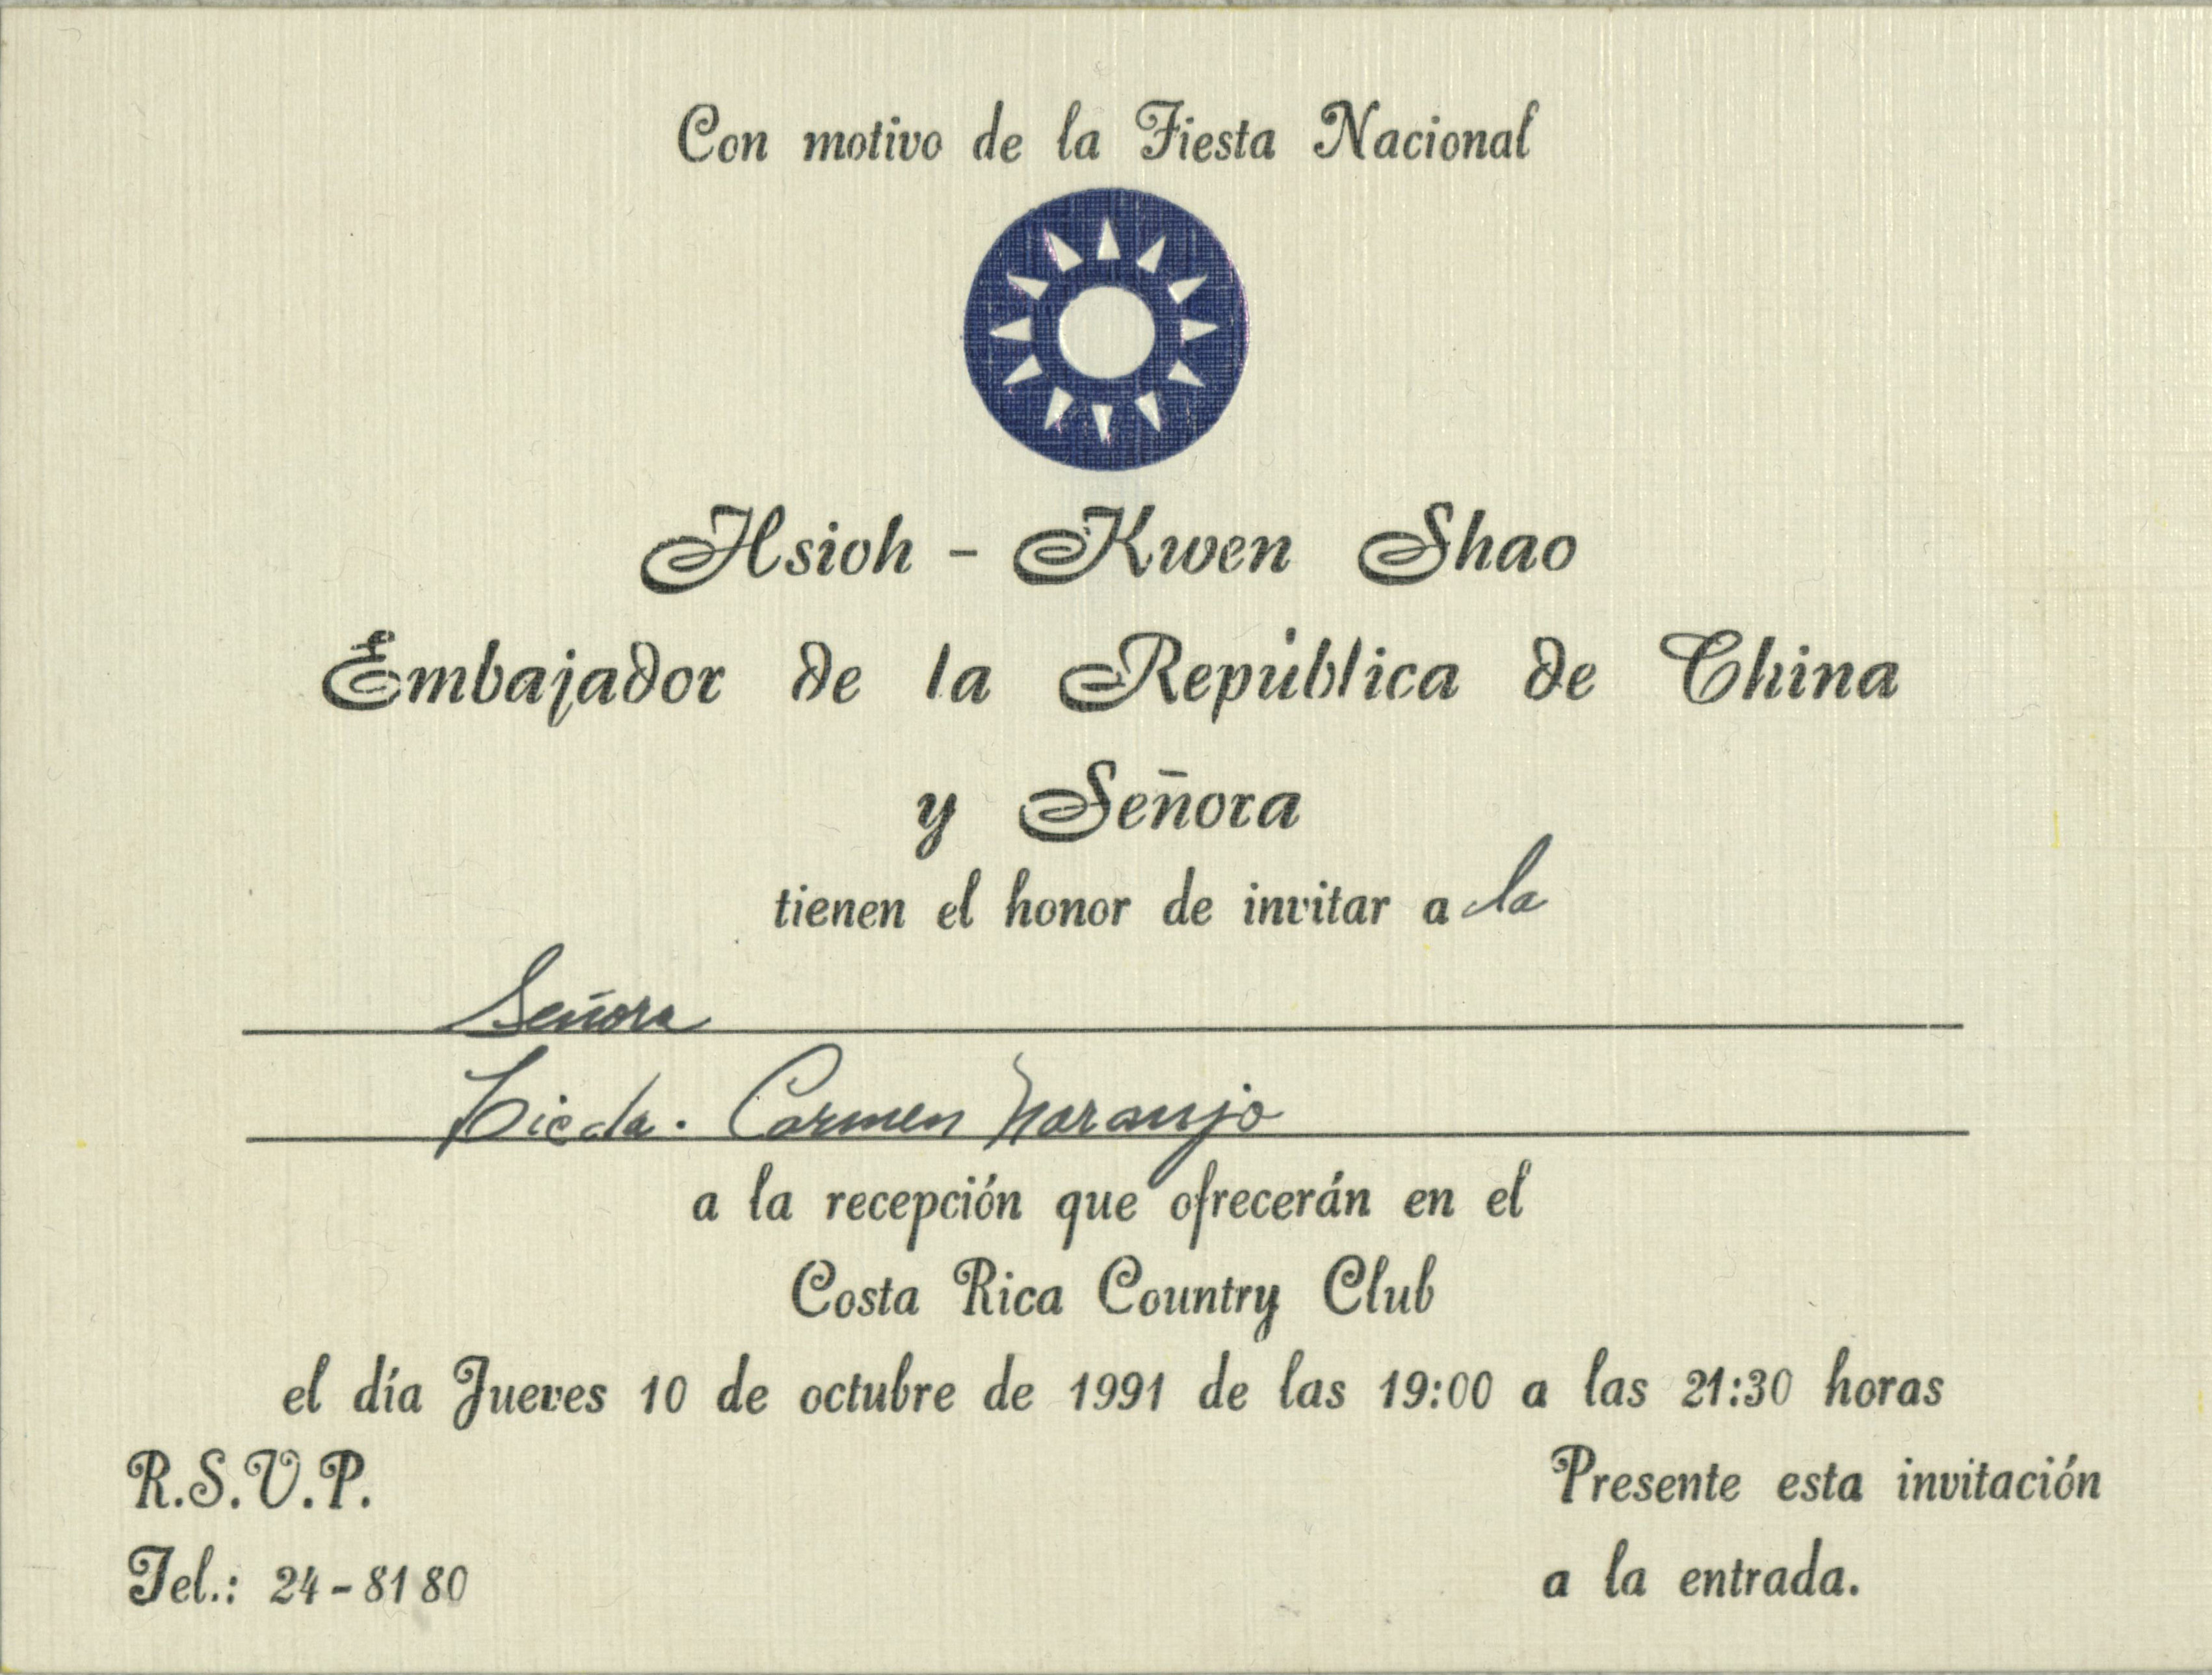 Con motivo de la Fiesta Nacional
Hsioh - Kwen Shao
Embajador de la República de China
y Señora
tienen el honor de invitar a la
Señora
Licda. Carmen Naranjo
a la recepción que ofrecerán en el
Costa Rica Country Club
el día Jueves 10 de octubre de 1991 de las 19:00 a las 21:30 horas
R.S.V.P.
Tel.: 24-8180
Presente esta invitación
a la entrada.